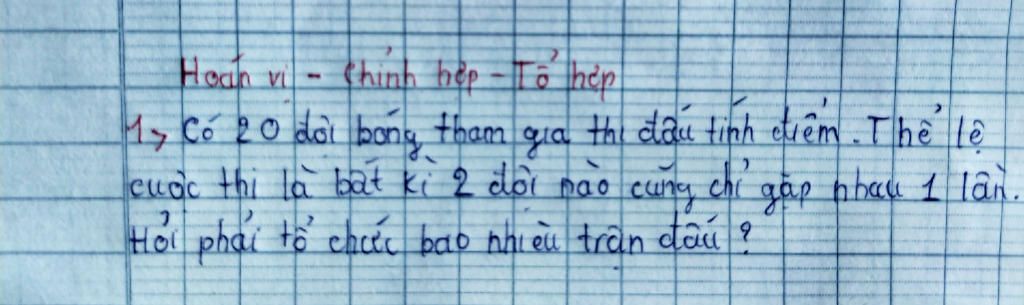 Hoán vị - Chỉnh hợp - Tổ hợp
1, Có 20 đội bóng tham gia thi đấu tính điểm. Thể lệ
cuộc thi là bất kì 2 đội nào cũng chỉ gặp nhau 1 lần.
Hỏi phải tổ chức bao nhiêu trận đấu?